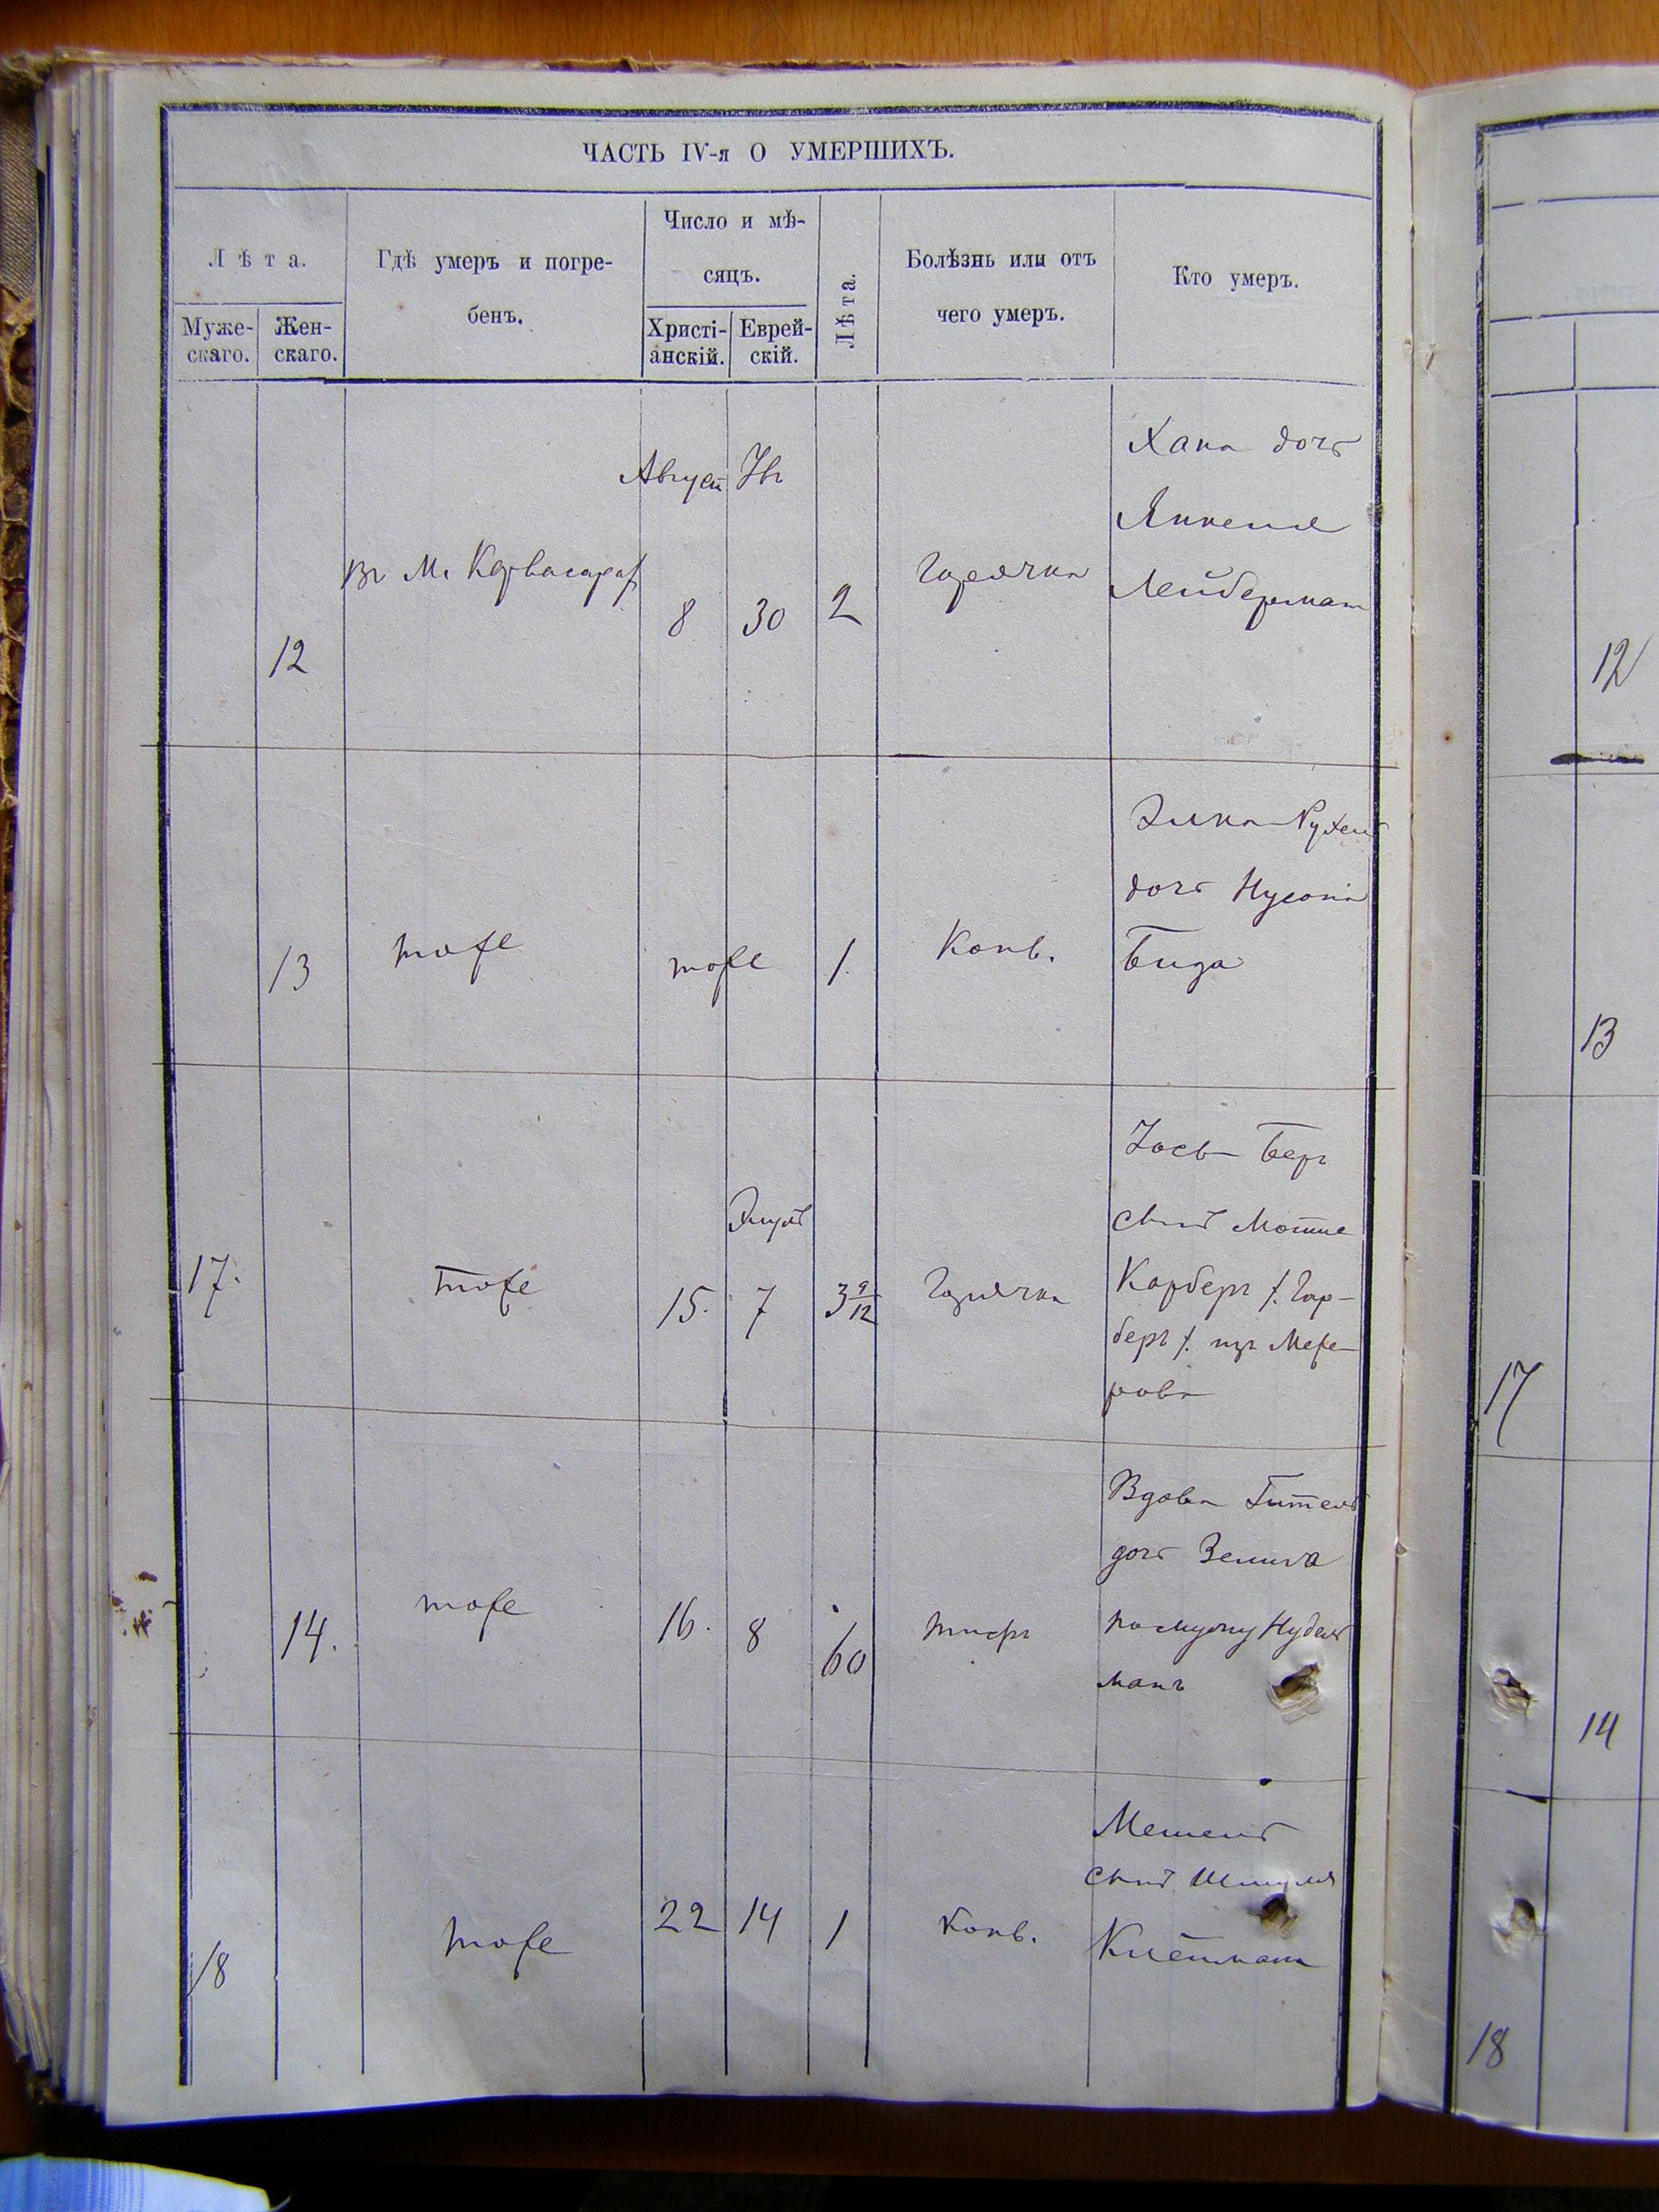 ЧАСТЬ IV-я О УМЕРШИХЪ.
Лѣта.
Муже-
скаго.
Жен-
скаго.
Гдѣ умеръ и погре-
бенъ.
Число и мѣ-
сяцъ.
Христі-
анскій.
Еврей-
скій.
Лѣта.
Болѣзнь или отъ
чего умеръ.
Кто умеръ.
12
Въ М.
Август
8
30
2
Горячка
Хана дочь
Янкеля
Лейберман
13
тоже
тоже
1
Конв.
Элка Рухель
дочь Нусона
Бида
17.
тоже
15.
Элулъ
7
3 9/12
Горячка
Іось Беръ
сынъ Мотие
Карберъ /. Гар-
беръ /. изъ Меже-
рова
14.
тоже
16.
8
60
тифъ
Вдова Гитель
дочь Зелига
по мужу Нудель
манъ
18
тоже
22
14
1
Конв.
сынъ Шмуля
Клейман
12
13
17
14
18